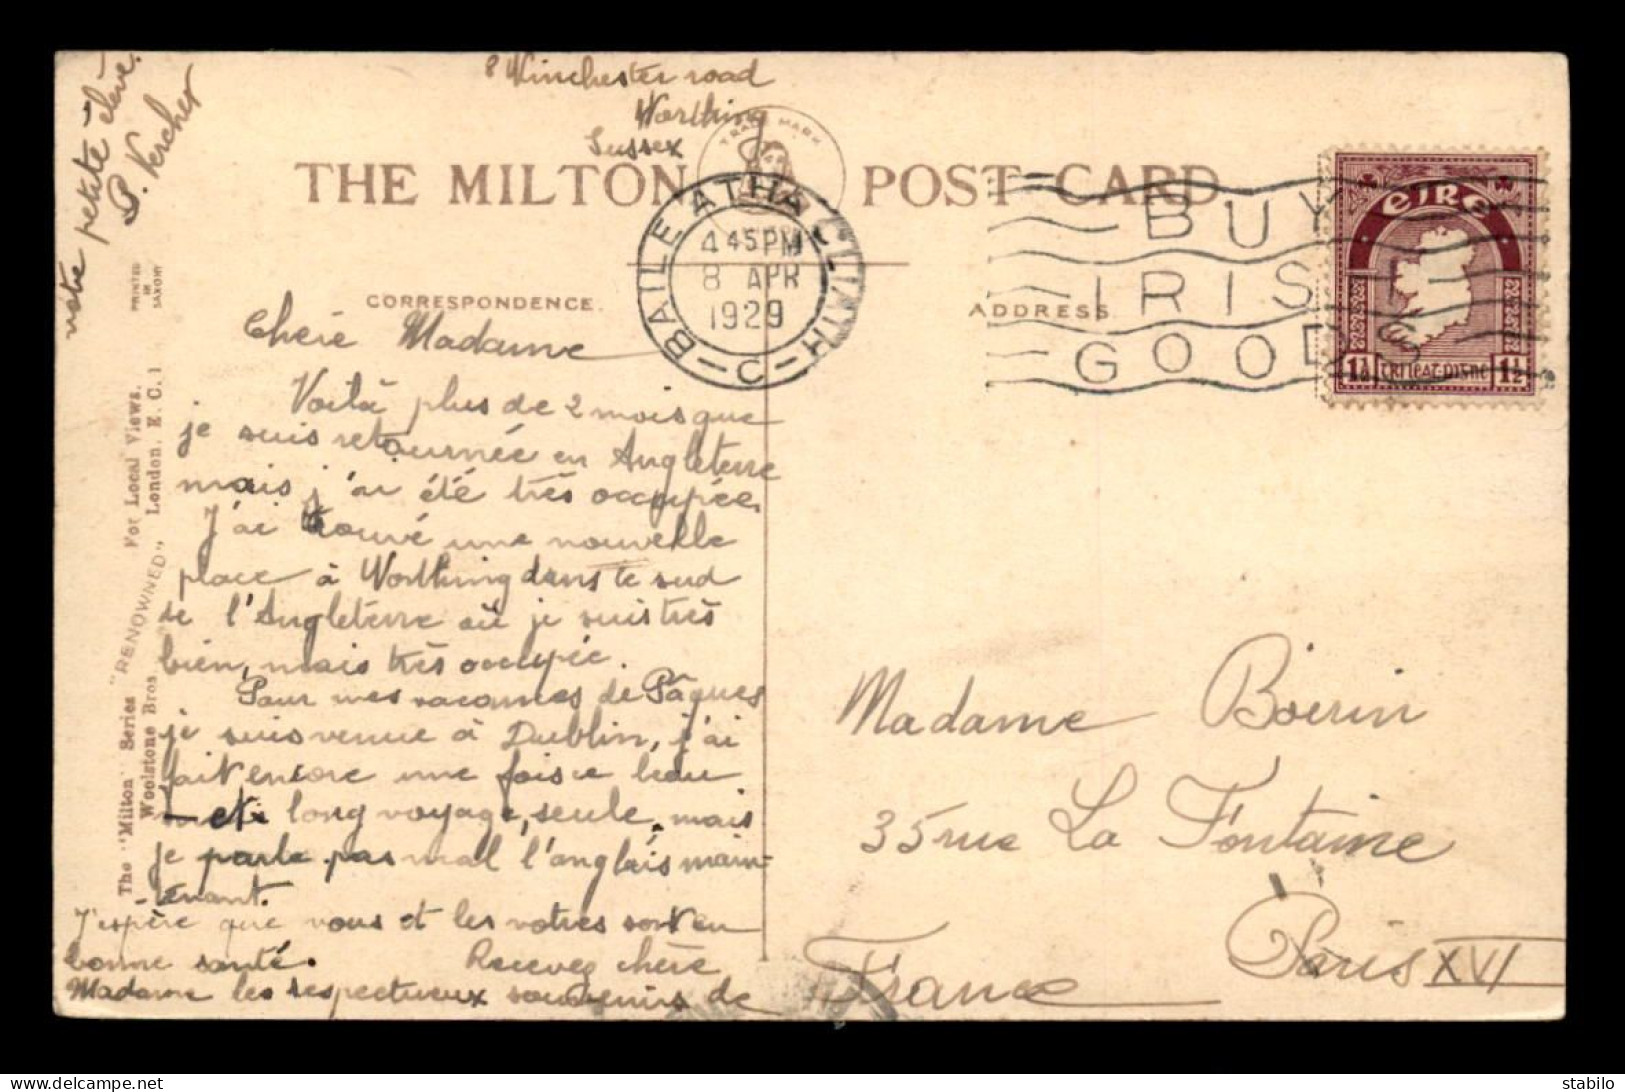 8 Winchester road
Worthing
Sussex
THE MILTON POST CARD
TRADE MARK
BAILE ATHA CLIATH
4 45 PM
8 APR
1929
C
BUY
IRISH
GOODS
EIRE
1½ 1½
CORRESPONDENCE.
ADDRESS.
Chère Madame
Voilà plus de 2 mois que
je suis retournée en Angleterre
mais j'ai été très occupée.
J'ai trouvé une nouvelle
place à Worthing dans le sud
de l'Angleterre où je suis très
bien, mais très occupée.
Pour mes vacances de Pâques
je suis venue à Dublin, j'ai
fait encore une fois ce beau
et long voyage, seule, mais
je parle pas mal l'anglais main-
tenant.
J'espère que vous et les votres sont en
bonne santé. Recevez chère
Madame les respectueux souvenirs de
votre petite élève.
P. Vercher
Madame Boerin
35 rue La Fontaine
Paris XVI
France
PRINTED
IN
SAXONY
The "Milton" Series "RENOWNED" For Local Views.
Woolstone Bros London, E. C. 1
delcampe.net
stabilo